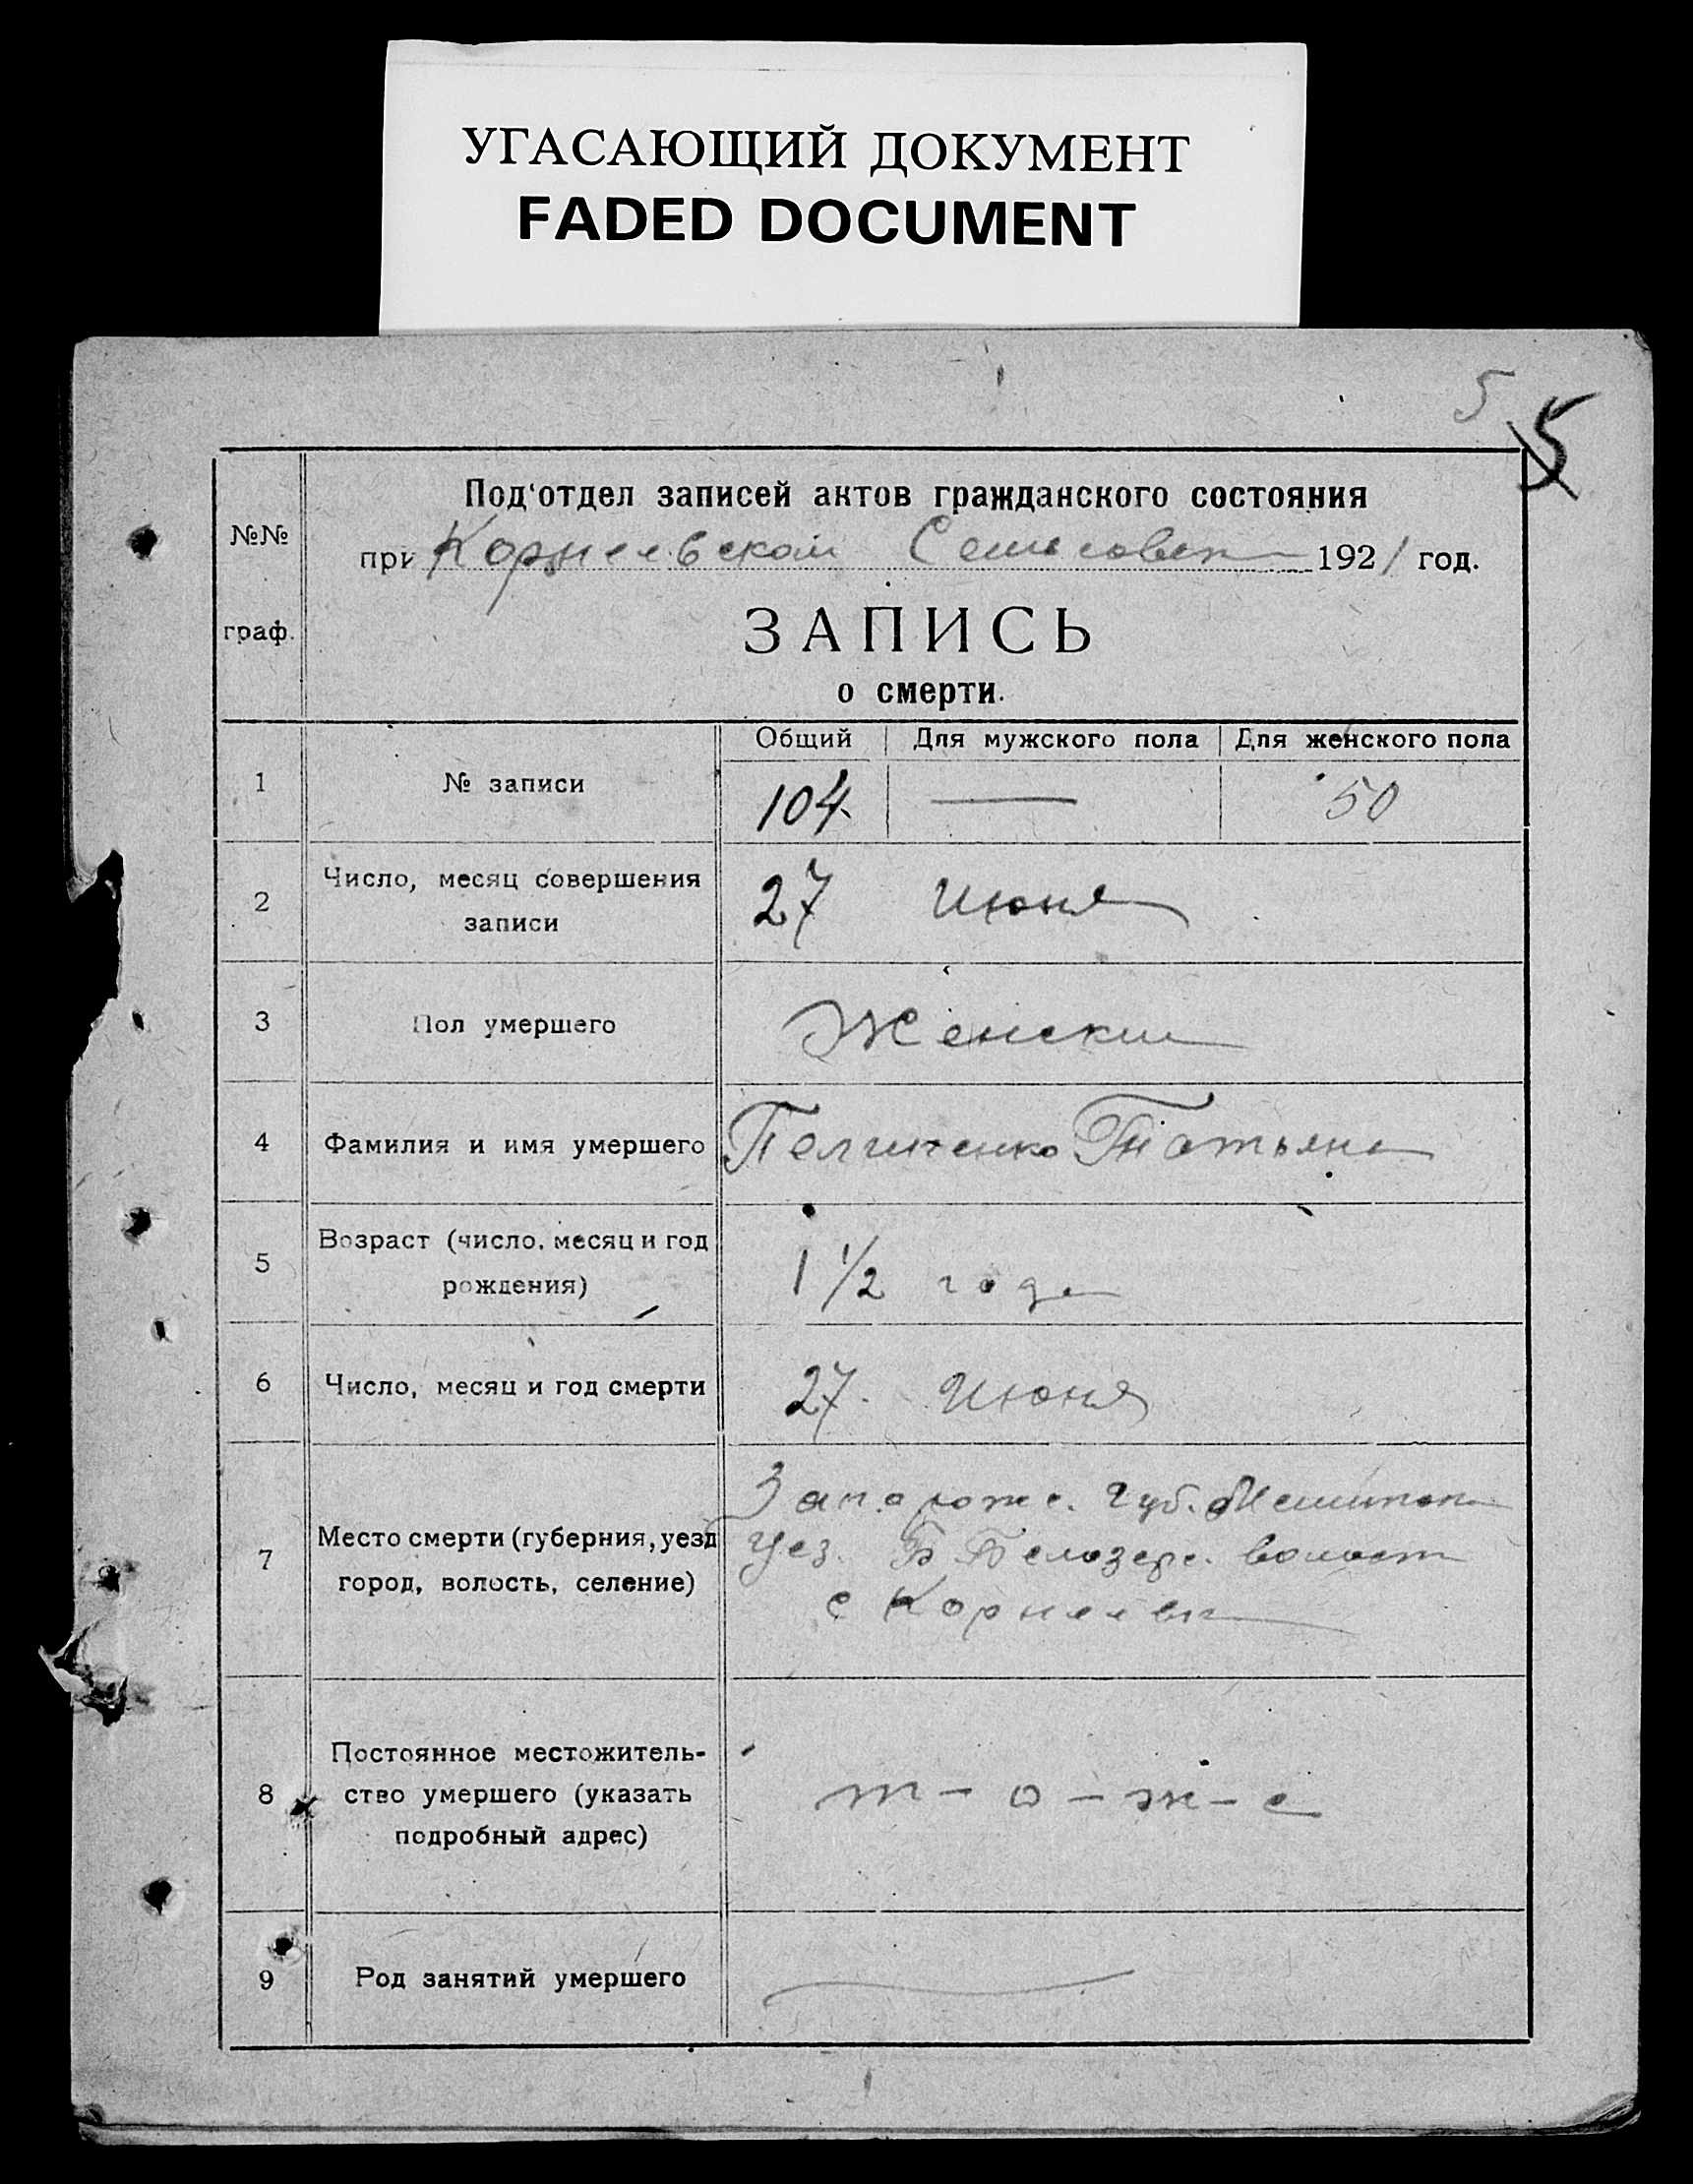 УГАСАЮЩИЙ ДОКУМЕНТ
FADED DOCUMENT
5 5
№№ граф.
Под'отдел записей актов гражданского состояния
при Корнеевском Сельсовет 1921 год.
ЗАПИСЬ
о смерти.
Общий Для мужского пола Для женского пола
1 № записи 104. — 50
2 Число, месяц совершения
записи 27 Июня
3 Пол умершего Женски
4 Фамилия и имя умершего Татьяна
5 Возраст (число, месяц и год
рождения) 1 1/2 года
6 Число, месяц и год смерти 27. Июня
7 Место смерти (губерния, уезд
город, волость, селение)
Запорож. Губ.
Уез. Б Белозерс. волост
с Корнеевк
8 Постоянное местожитель-
ство умершего (указать
подробный адрес) т - о - ж - е
9 Род занятий умершего —